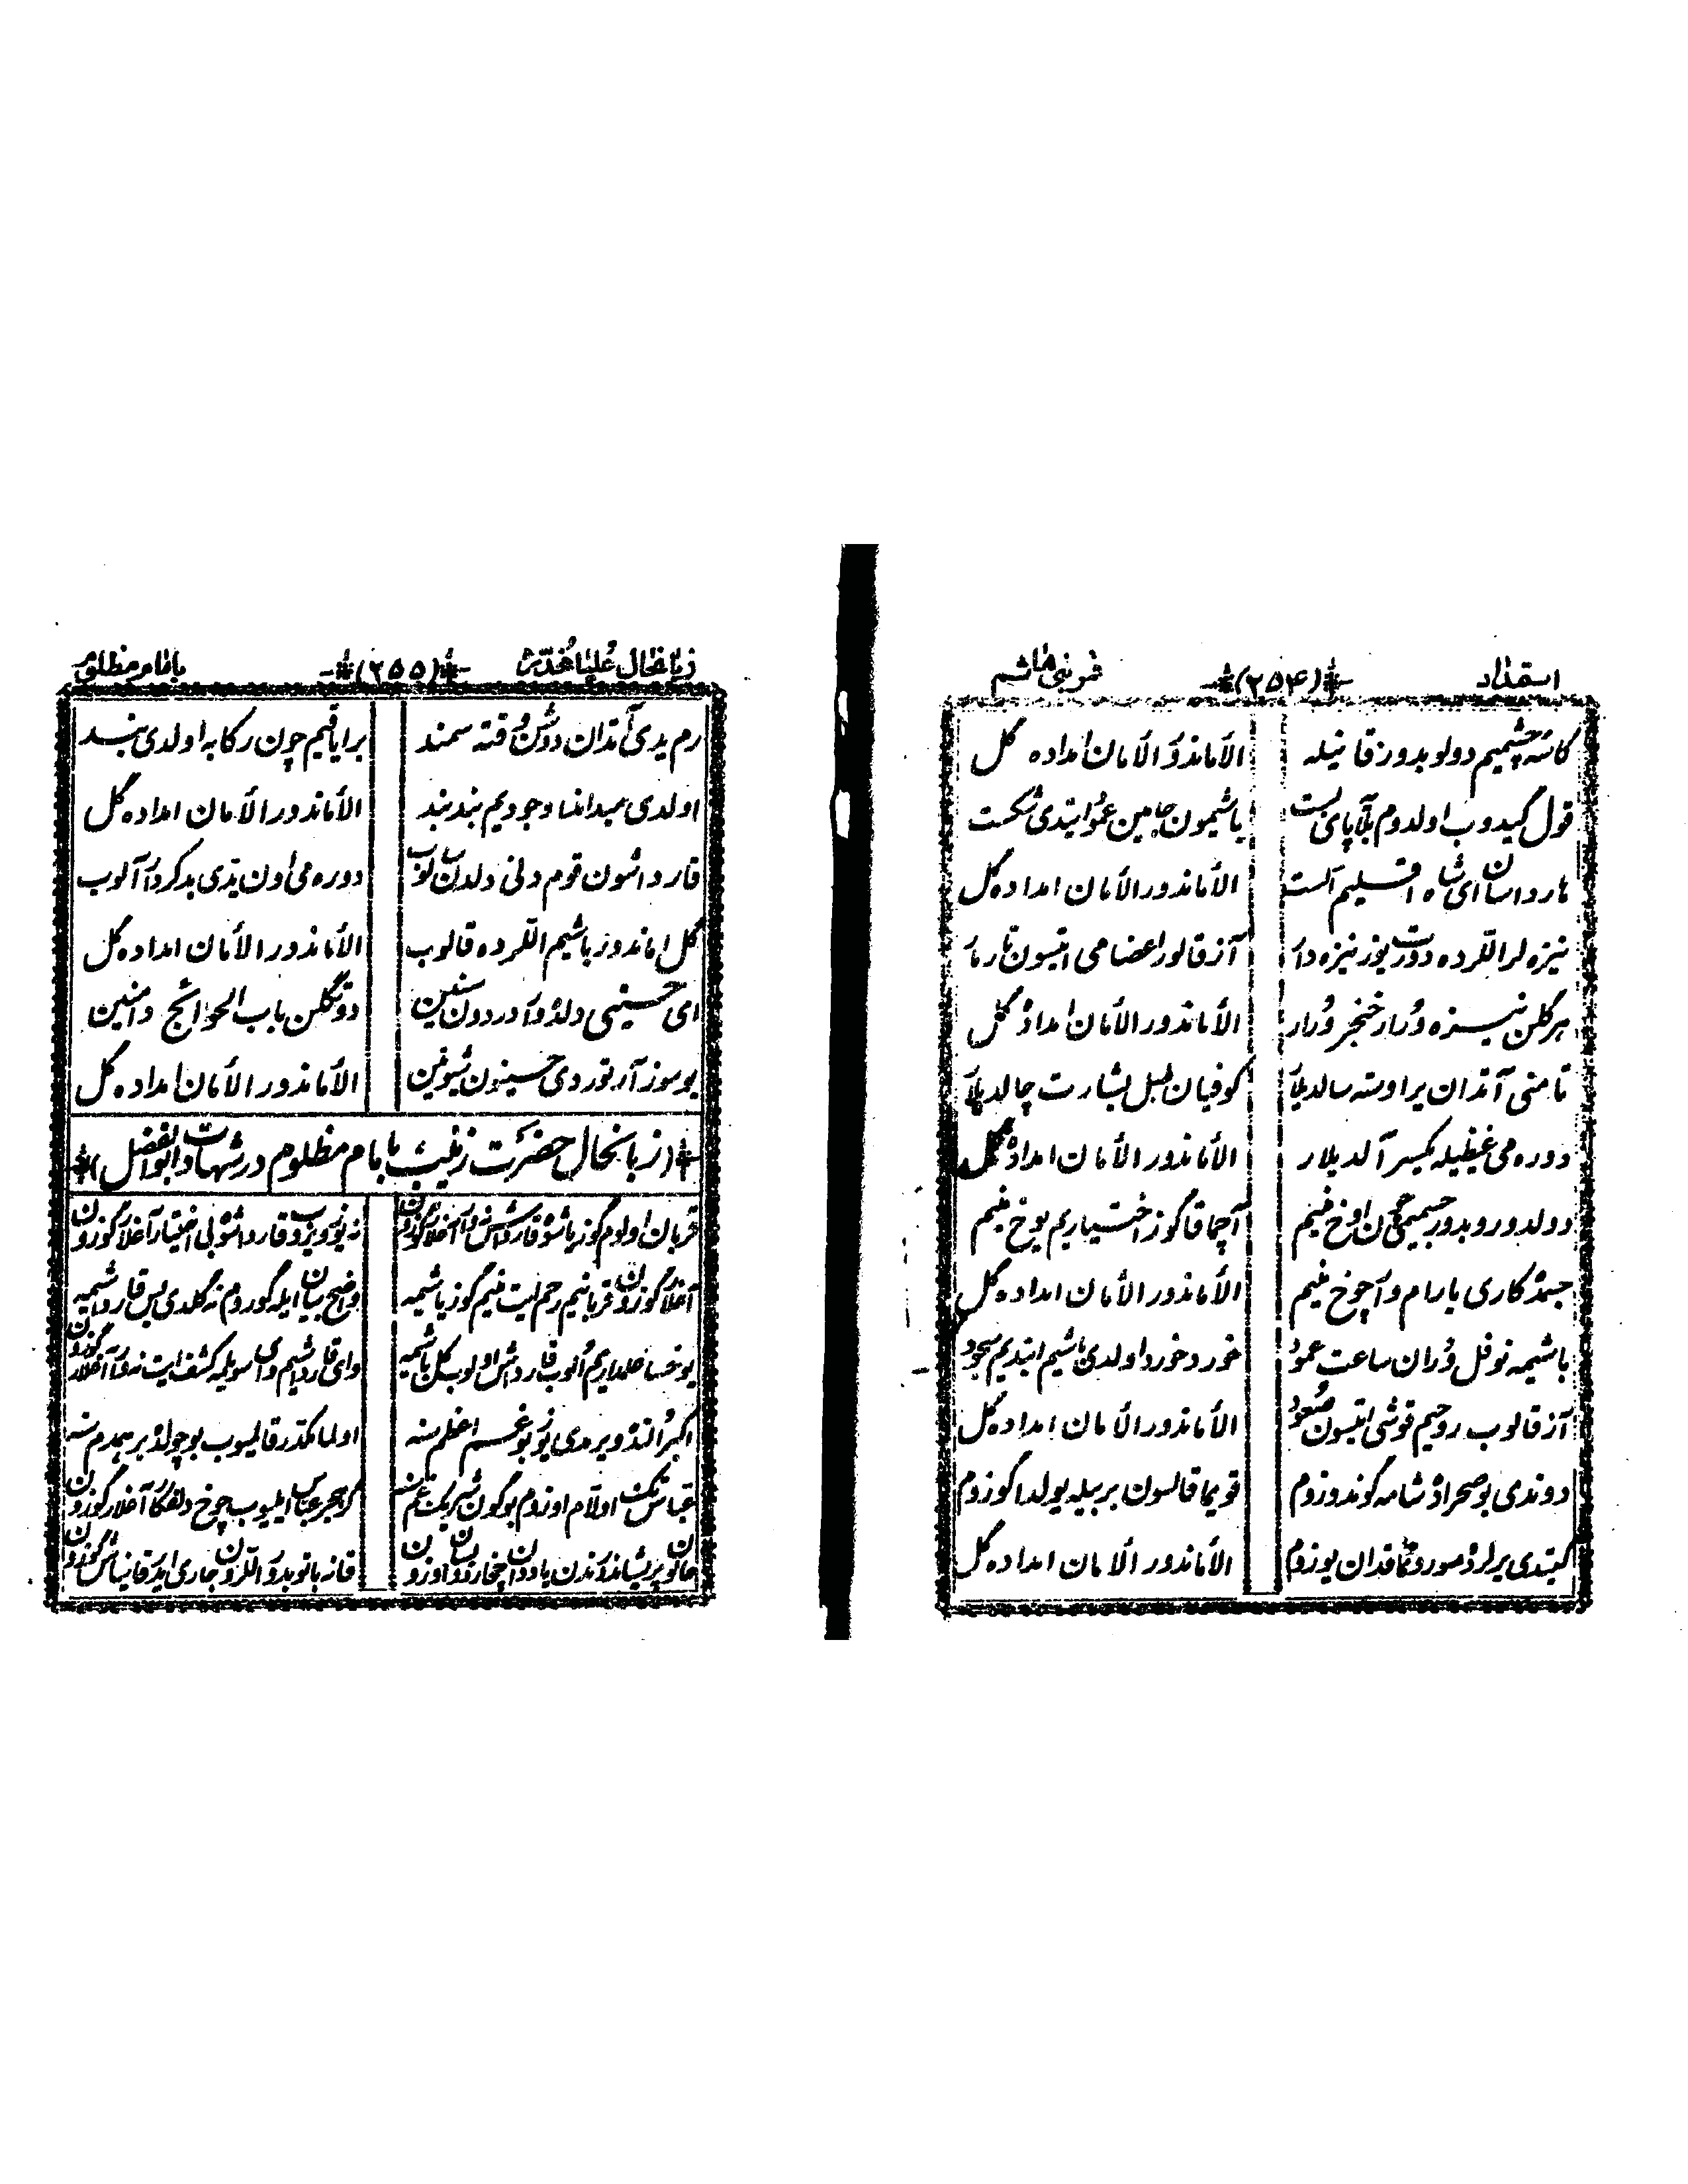 استمداد (۲۵۴) قمر بنی هاشم
کاسه چشیم دولوبدور قانیله الأماندور الأمان امداده گل
قول گیدوب اولدوم بلا پای بست باشیمون جامین عمود ایتدی شکست
هارداسان ای شاه اقلیم الست الأماندور الأمان امداده گل
نیزه لر اللرده دورت یوز نیزه دار آز قالور اعضامی ایتسون تارمار
هر گلن نیزه وُرار خنجر وُرار الأماندور الأمان امداده گل
تا منی آتدان یر اوسته سالدیلار کوفیان طبل بشارت چالدیلار
دوره می غیظیله یکسر آلدیلار الأماندور الأمان امداده گل
دولدوروبدور جسمیمی اوخ منیم آچماقا گوز اختیاریم یوخ منیم
جسمده کاری یارام وار چوخ منیم الأماندور الأمان امداده گل
باشیمه نوفل وُران ساعت عمود خورد خورد اولدی باشیم ایتدیم سجود
آز قالوب روحیم قوشی ایتسون صعود الأماندور الأمان امداده گل
دوندی بو صحراده شامه گوندوزوم قویما قالسون بربیله یولدا گوزوم
گیتدی یرلرده سورو‌نماقدان یوزوم الأماندور الأمان امداده گل
زبانحال عُلیا مُخدّره (۲۵۵) با امام مظلوم
رم یدی آتدان دوشن وقته سمند بر ایاقیم چون رکابه اولدی بند
اولدی میداندا وجودیم بند بند الأماندور الأمان امداده گل
قارداشون قوم دنی دلدن سالوب دوره می اون یدی بدکردار آلوب
گل اماندور باشیم اللرده قالوب الأماندور الأمان امداده گل
ای حسینی دلده وار دردون سنین دوتگلن باب الحوائج دامنین
بو سوز آرتوردی حسینون شیونین الأماندور الأمان امداده گل
(زبانحال حضرت زینب با امام مظلوم در شهادت ابوالفضل)
قربان اولوم گوز یاشوه قارداش نه وار آغلار گوزون نه یوز ویروب قارداشوه بی اختیار آغلار گوزون
آغلار گوزون قربانیم رحم ایت منیم گوز یاشیمه واضح بیان ایله گوروم نه گلدی بس قارداشیمه
یوخسا علمداریم اُلوب قارداش اولوب کل باشیمه وای قارداشیم وای سویله کشف ایت نه وار آغلار گوزون
اکبر اُلنده ویرمدی یوز بو غم اعظم سنه اولماکدر قالیوب بو چولده بر همدم سنه
عباس تک اولام اوزوم بوگون شریک غم سنه گر هجر عباس ایلیوب چوخ دلفکار آغلار گوزون
حالون پریشاندور ندن یادوان چخاردوبسان اوزون قانه باتوبدور اللرون جاری ایدر قانیاش گوزون